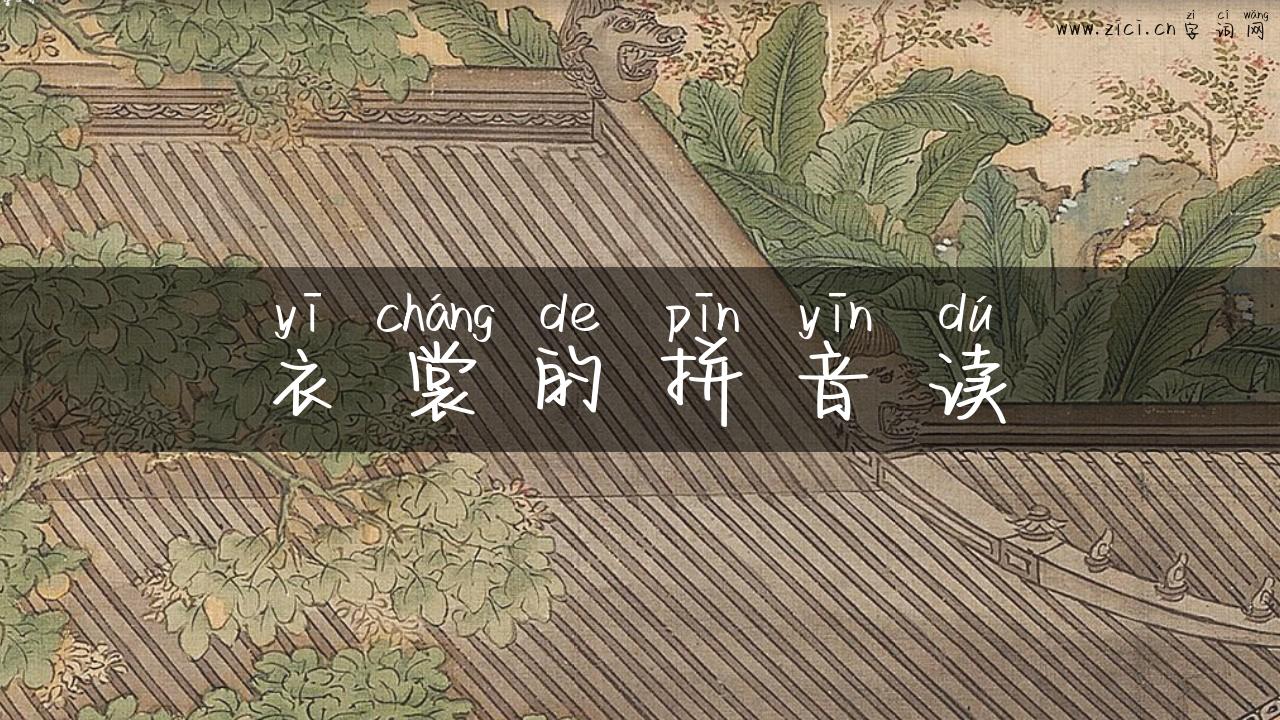 zì cí wǎng
www.zici.cn 字词网
yī cháng de pīn yīn dú
衣裳的拼音读